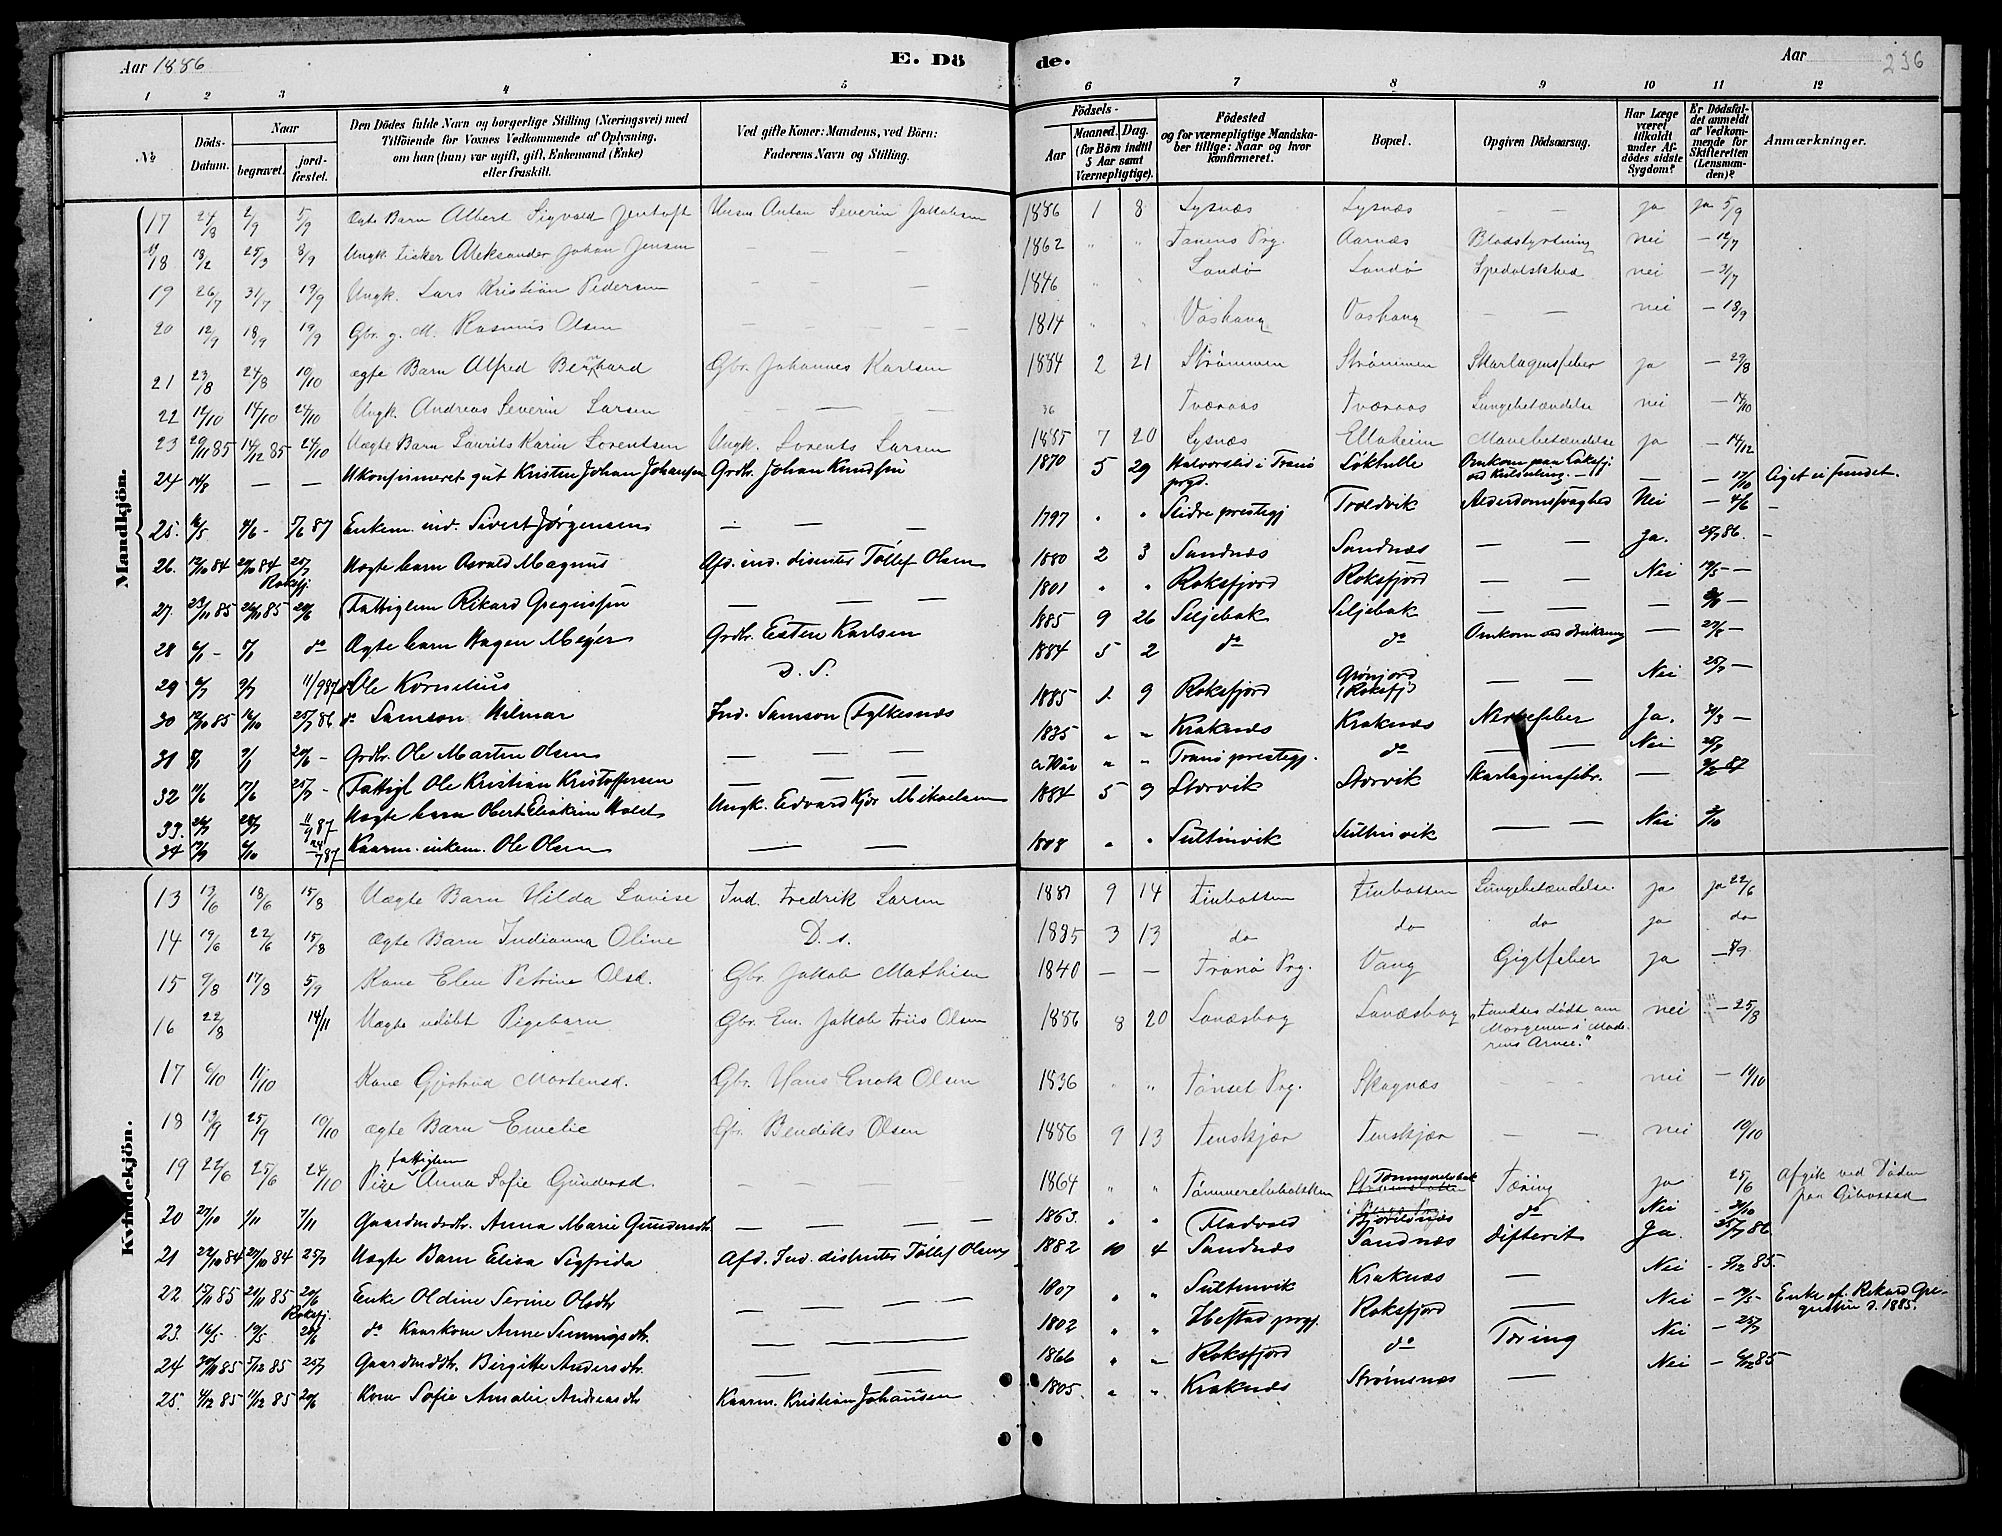 Aar 1886 E. Dö de. Aar 236
1 2 3 4 5 6 7 8 9 10 11 12
№ Döds-Datum. Naar begravet. jord-fæstet. Den Dödes fulde Navn og borgerlige Stilling (Næringsvei) med Tilföiende for Voxnes Vedkommende af Oplysning, om han (hun) var ugift, gift, Enkemand (Enke) eller fraskilt. Ved gifte Koner: Mandens, ved Börn: Faderens Navn og Stilling. Födsels- Aar Maaned. Dag. (for Börn indtil 5 Aar samt Værnepligtige). Födested og for værnepligtige Mandskaber tillige: Naar og hvor konfirmeret. Bopæl. Opgiven Dödsaarsag. Har Læge været tilkaldt under Afdödes sidste Sygdom? Er Dödsfaldet anmeldt af Vedkommende for Skifteretten (Lensmanden)? Anmærkninger.
Mandkjön.
17 24/8 2/9 5/9 Ægte Barn Albert Sigvald Jentoft Husm Anton Severin Jakobsen 1886 1 8 Lysnæs Lysnæs — — ja ja 5/9
18 18/2 25/3 8/9 Ungk. Fisker Aleksander Johan Jensen — — 1862 " " Tanens Prg. Aarnæs Blodstyrtning nei — 12/7
19 26/7 31/7 19/9 Ungk. Lars Kristian Pedersen — — — 1846 " " Sandø Sandø Spedalskhed nei — 3/7
20 12/9 18/9 19/9 Gbr. g. M. Rasmus Olsen — — — 1814 " " Vashaug Vashaug — — nei — 18/9
21 23/8 24/8 10/10 ægte Barn Alfred Bernhard Gbr. Johannes Karlsen 1884 2 21 Strømmen Strømmen Skarlagensfeber ja — 29/8
22 12/10 14/10 24/10 Ungk. Andreas Severin Larsen — — — 36 Tværaas Tværaas Lungebetændelse nei — 14/10
23 29/11 85 14/12 85 24/10 Uægte Barn Laurits Karin Lorentsen Ungk. Lorents Larsen 1885 7 20 Lysnæs Ellaheim Mavebetændelse ja — 14/12
24 14/8 — — Ukonfirmeret gut Kristen Johan Johansen Grdbr. Johan Knudsen 1870 5 29 Halvorslid i Tranø prgd. Løktulle Omkom paa Loksfj. ved Kulseiling. — — — 17/10 Liget ei fundet.
25. 4/6 - 5/6 87 Enkem. ind. Sivert Jørgensen — — — 1797 " " Slidre prestegj Troldvik Alderdomssvaghed Nei — 4/6 —
26. 12/10 84 20/10 84 Roksfj. 25/7 Uægte barn Osvald Magnus Afd. ind. disenter Tollef Olsen 1880 2 3 Sandnæs Sandnæs — — Ja. 25/7 86. —
27. 23/11 85 26/11 85 20/6 Fattiglem Rikard Gregersen — — — 1801 " " Roksfjord Roksfjord — — Nei 19/5 —
28 6/1 - 9/1 do Ægte barn Hagen Meyer Grdbr. Esten Karlsen 1885 9 26 Seljebak Seljebak — — —
29 11/9 87 do Ole Kornelius D. S. 1884 5 2 do do Omkom ved drukning — 27/8 —
30 12/10 85 16/10 25/7 86 do Samson Hilmar Ind. Samson Fylkesnæs 1885 1. 9 Roksfjord Grønjord (Roksfj) — — Nei 25/7 —
31 9/1 20/6 - Grdbr. Ole Marten Olsen — — — 1835 " " Kraknæs Kraknæs Nervefeber Ja. —
32 11/6 17/6 25/7 - Fattigl Ole Kristian Kristoffersen — — — " " Tranø prestegj. do — — Nei 25/7
33. 11/9 87 Uægte barn Obert Eliakim Holst Ungk. Edvard Kjær Mikaelsen 1884 5 9 Storvik Storvik Skarlagensfebr. — 87
34 6/10 24/7 87 Kaarm. enkem. Ole Olsen — — 1808 " " Sultinvik Sultinvik — — Nei 3/10
Kvindekjön.
13 13/6 18/6 15/8 Uægte Barn Hilda Lovise Ind. Fredrik Larsen 1881 9 14 Finbotten Finbotten Lungebetændelse. ja ja 22/6
14 19/6 22/6 15/8 ægte Barn Indianna Oline D. s. 1885 3 13 do do do ja do
15 9/8 17/8 5/9 Kone Elen Petrine Olsd. Gbr. Jakob Mathisen 1840 — — Tranø Prg. Vang Gigtfeber ja — 5/9
16 22/8 14/11 Uægte udøbt Pigebarn Gbr. Em. Jakob Friis Olsen 1886 8 20 Lanæsbog Lanæsbog "Fandtes dødt om Morgenen i Moderens Arme." nei — 25/8
17 6/10 11/10 Kone Gjertrud Mortensd. Gbr. Hans Enok Olsen 1836 " " Tønset Prg. Skognæs — — nei — 14/10
18 19/9 25/9 10/10 ægte Barn Emelie Gbr. Bendiks Olsen 1886 9 13 Tenskjær Tenskjær — — nei 10/10
19 22/6 25/6 24/10 Pige fattiglem Anna Sofie Gundersd. — — — 1864 " " Tømmerelvbotten Tommerelvbak Tæring ja 25/6 Afgik ved Døden paa Gibostad
20 29/10 1/11 7/11 Gaardmdsdtr. Anna Marie Gundersdtr — — — 1863. " " Fladvold Bjorelvnæs do Nei - 30/10
21 22/10 84 29/10 84 25/7 Uægte Barn Elisa Sigfrida Afd. Ind. disenter Tollef Olsen 1882 10 4 Sandnæs Sandnæs difterit Ja. - 25/7 86
22 15/11 85 21/11 85 Roksfj. 20/6 Enke Oldine Serine Olsdtr — — — 1807 " " Sultinvik Kraknæs — Nei - 9/12 85.
23. 16/5 19/5 20/6 do Kaarkone Anne Simmingsdtr. — — — 1802 " " Ibestad prgj. Roksfjord — Nei - 19/5 - Enke af Rikard Gregersen d. 1885.
24 30/11 85 5/12 85 25/7 Gaardmdtr. Birgitte Andersdtr. — — 1866 " " Roksfjord do Tæring Nei - 25/7
25. 4/12 85 11/12 85 20/6 Kone Sofie Amalie Andreasdtr Kaarm. Kristian Johansen 1805. " " Kraknæs Strømsnæs — Nei - 6/12 85